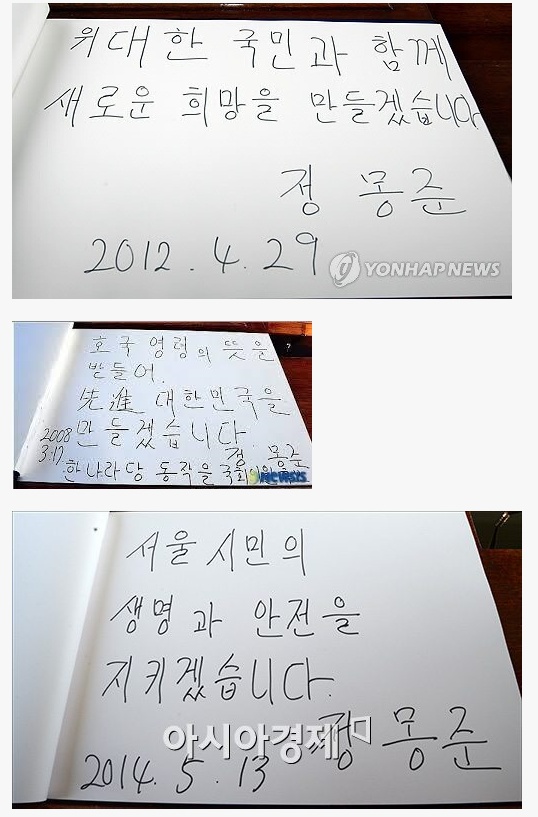 위대한 국민과 함께
새로운 희망을 만들겠습니다
정 몽준
2012. 4. 29
YONHAP NEWS
호국영령의 뜻을
받들어.
先進 대한민국을
만들겠습니다.
2008
3.17.
정 몽준
한나라당 동작을 국회의원
NEWSIS
서울 시민의
생명과 안전을
지키겠습니다.
아시아경제
정 몽준
2014. 5. 13